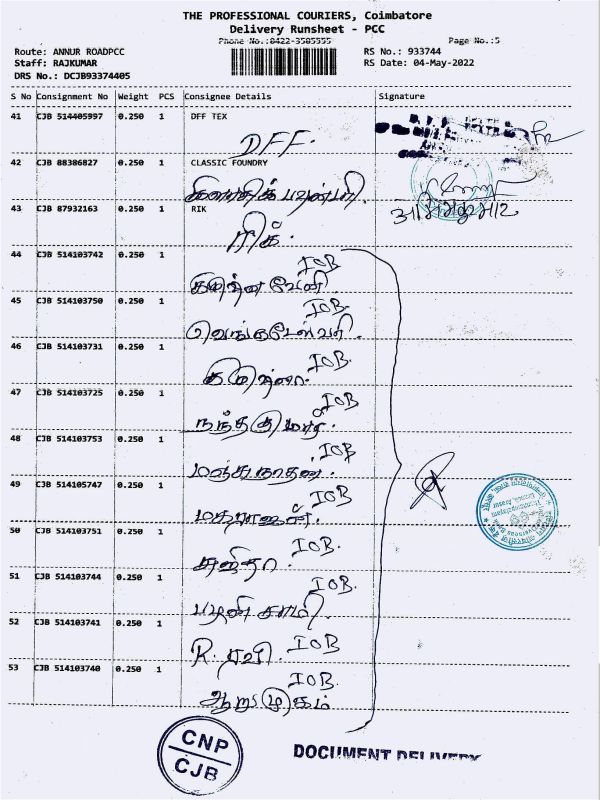 THE PROFESSIONAL COURIERS, Coimbatore
Delivery Runsheet - PCC
Phone No.:0422-3505555 Page No.:5
Route: ANNUR ROADPCC RS No.: 933744
Staff: RAJKUMAR RS Date: 04-May-2022
DRS No.: DCJB93374405
S No Consignment No Weight PCS Consignee Details Signature
41 CJB 514405997 0.250 1 DFF TEX
DFF.
42 CJB 88386827 0.250 1 CLASSIC FOUNDRY
கிளாசிக் பவுண்டரி.
43 CJB 87932163 0.250 1 RIK
ரிக்.
44 CJB 514103742 0.250 1 IOB
கிருஷ்ணவேணி
45 CJB 514103750 0.250 1 IOB.
வெங்கடேஸ்வரி.
46 CJB 514103731 0.250 1 IOB.
47 CJB 514103725 0.250 1 IOB
நந்தகுமார்.
48 CJB 514103753 0.250 1 IOB
மஞ்சுநாதன்.
49 CJB 514105747 0.250 1 IOB
50 CJB 514103751 0.250 1 IOB.
சஜிதா.
51 CJB 514103744 0.250 1 IOB.
பழனிசாமி.
52 CJB 514103741 0.250 1 IOB
R. ரவி.
53 CJB 514103740 0.250 1 IOB.
ஆறுமுகம்
CNP
CJB
DOCUMENT DELIVERY